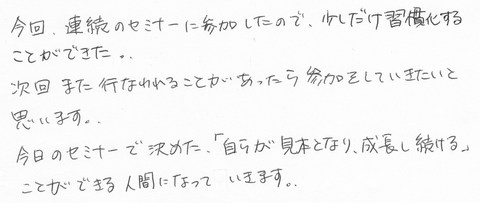 今回、連続のセミナーに参加したので、少しだけ習慣化する
ことができた。.
次回また行なわれることがあったら参加をしていきたいと
思います。.
今日のセミナーで決めた、「自らが見本となり、成長し続ける」
ことができる人間になって いきます。.